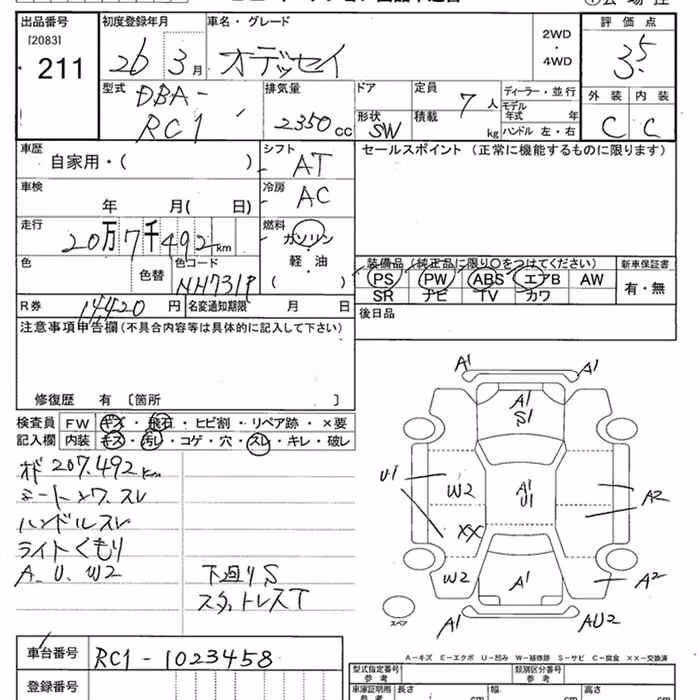 出品番号
[2083]
211
初度登録年月
26 3月
車名・グレード
オデッセイ
2WD
・
4WD
評価点
3.5
外装 内装
C C
型式
DBA-
RC1
排気量
2350cc
ドア
形状
SW
定員
7人
積載
kg
ディーラー・並行
モデル
年式 年
ハンドル 左・右
車歴
自家用・( )
シフト
AT
セールスポイント (正常に機能するものに限ります)
車検
年 月( 日)
冷房
AC
走行
20万7千492km
燃料
ガソリン
・
軽・油
( )
色
色替
色コード
NH731P
装備品 (純正品に限り○をつけてください)
PS PW ABS エアB AW
SR ナビ TV カワ
新車保証書
有・無
R券 14,420円
名変通知期限 月 日
後日品
注意事項申告欄(不具合内容等は具体的に記入して下さい)
修復歴 有 〔箇所 〕
検査員
記入欄
FW キズ・飛石・ヒビ割・リペア跡・×要
内装 キズ・汚レ・コゲ・穴・スレ・キレ・破レ
207.492km
シートシワ、スレ
ハンドルスレ
ライトくもり
A、U、W2
下廻りS
スタットレスT
A1 A1
A1
S1
U1
W2
A1
U1
A2
XX
W2
A1
A2
A1
AU2
スペア
A-キズ E-エクボ U-凹み W-補修跡 S-サビ C-腐食 XX-交換済
車台番号
RC1-1023458
登録番号
型式指定番号
類別区分番号
車庫証明用
参考
長さ cm
幅 cm
高さ cm